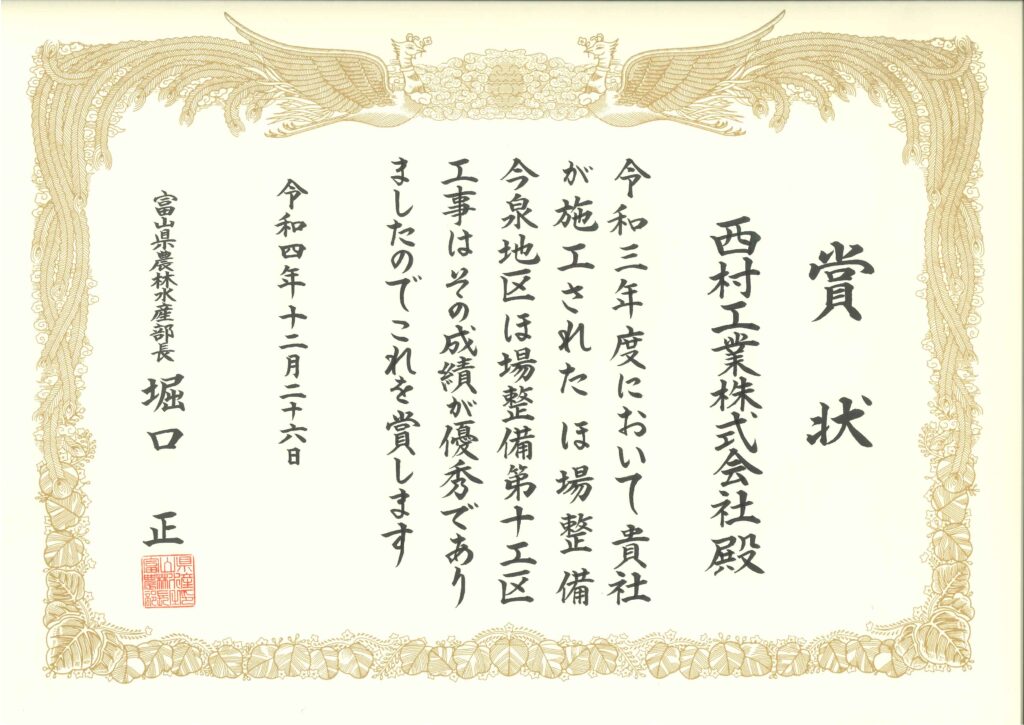 賞状
西村工業株式会社殿
令和三年度において貴社
が施工されたほ場整備
今泉地区ほ場整備第十工区
工事はその成績が優秀であり
ましたのでこれを賞します
令和四年十二月二十六日
富山県農林水産部長 堀口 正